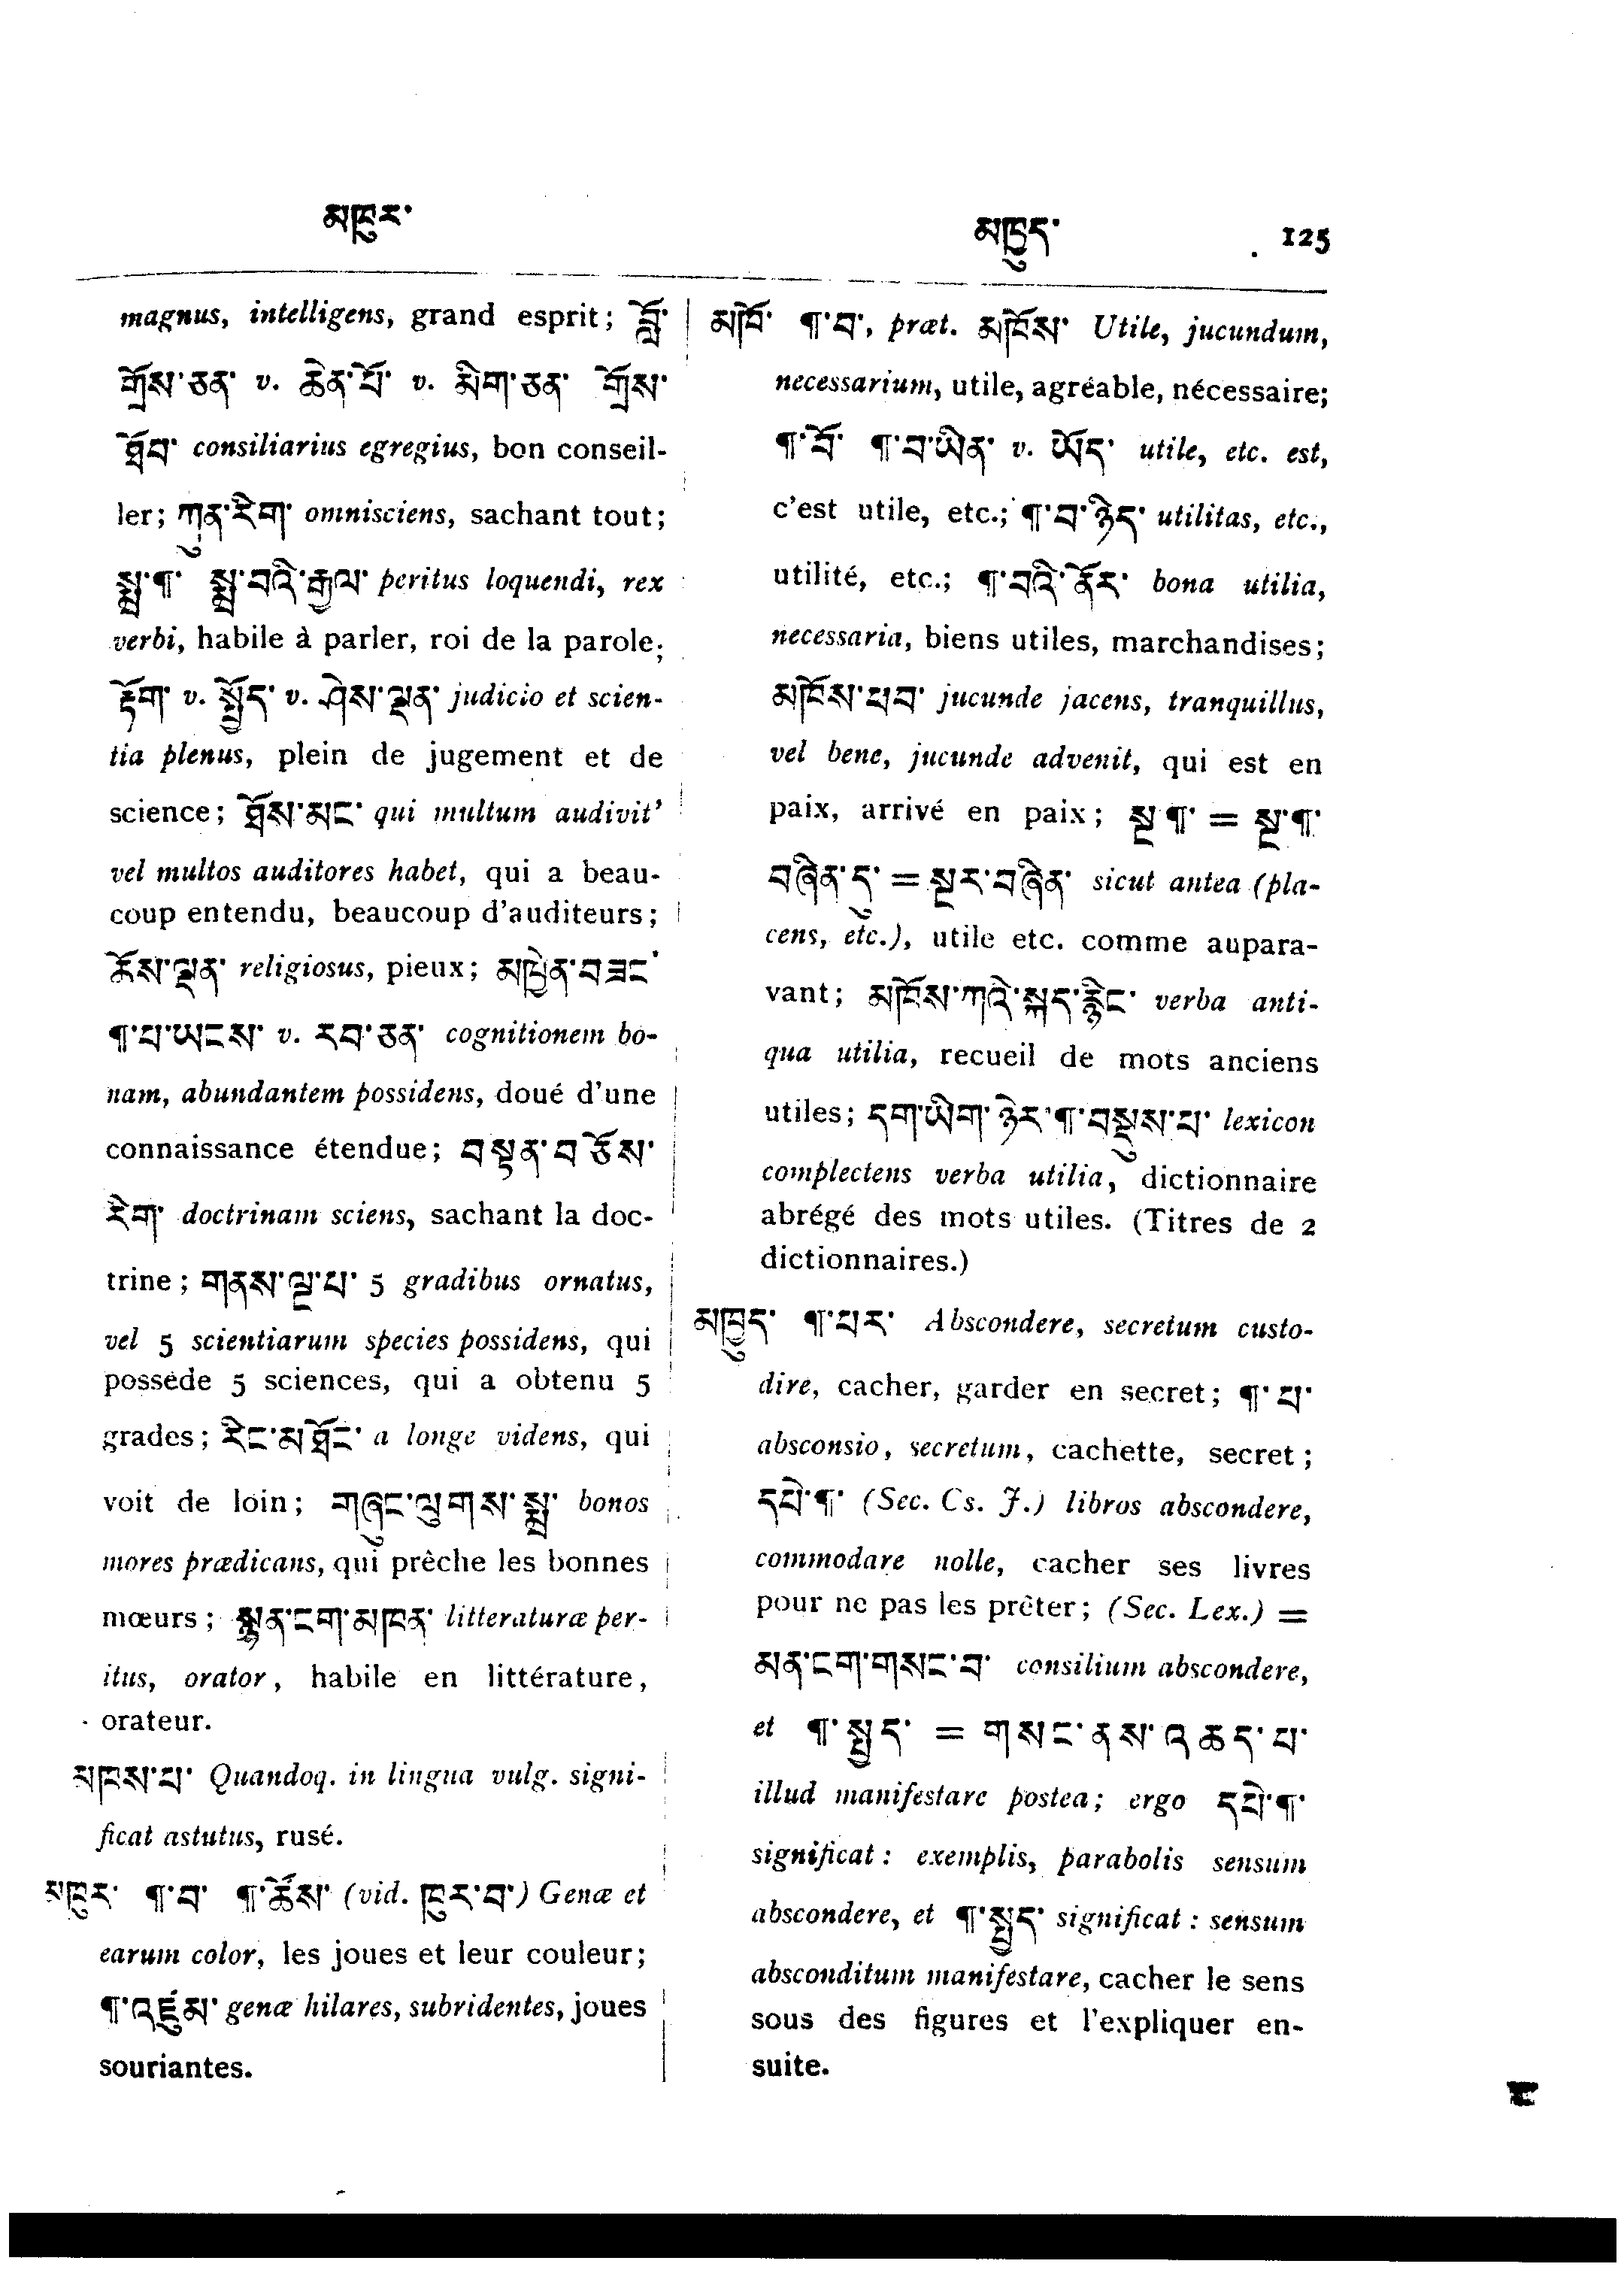 མཁུར་
མཁྱུད་ 125
magnus, intelligens, grand esprit; བློ་
གྲོས་ཅན་ v. ཆེན་པོ་ v. མིག་ཅན་ གྲོས་
ཐོབ་ consiliarius egregius, bon conseil-
ler; ཀུན་རིག་ omnisciens, sachant tout;
སྨྲ་¶་ སྨྲ་བའི་རྒྱལ་ peritus loquendi, rex
verbi, habile à parler, roi de la parole;
རྟོག་ v. སྤྱོད་ v. ཤེས་ལྡན་ judicio et scien-
tia plenus, plein de jugement et de
science; ཐོས་མང་ qui multum audivit'
vel multos auditores habet, qui a beau-
coup entendu, beaucoup d'auditeurs;
ཆོས་ལྡན་ religiosus, pieux; མཁྱེན་བཟང་
¶་པ་ཡངས་ v. རབ་ཅན་ cognitionem bo-
nam, abundantem possidens, doué d'une
connaissance étendue; བསྟན་བཅོས་
རིག་ doctrinam sciens, sachant la doc-
trine; གནས་ལྔ་པ་ 5 gradibus ornatus,
vel 5 scientiarum species possidens, qui
possède 5 sciences, qui a obtenu 5
grades; རིང་མཐོང་ a longe videns, qui
voit de loin; གཞུང་ལུགས་སྨྲ་ bonos
mores prædicans, qui prêche les bonnes
mœurs; སྙན་ངག་མཁན་ litteraturæ per-
itus, orator, habile en littérature,
orateur.
མཁས་པ་ Quandoq. in lingua vulg. signi-
ficat astutus, rusé.
མཁུར་ ¶་བ་ ¶་ཚོས་ (vid. ཁུར་བ་) Genæ et
earum color, les joues et leur couleur;
¶་འཛུམ་ genæ hilares, subridentes, joues
souriantes.
མཁོ་ ¶་བ་, præt. མཁོས་ Utile, jucundum,
necessarium, utile, agréable, nécessaire;
¶་བོ་ ¶་བ་ཡིན་ v. ཡོད་ utile, etc. est,
c'est utile, etc.; ¶་བ་ཉིད་ utilitas, etc.,
utilité, etc.; ¶་བའི་ནོར་ bona utilia,
necessaria, biens utiles, marchandises;
མཁོས་ཕབ་ jucunde jacens, tranquillus,
vel bene, jucunde advenit, qui est en
paix, arrivé en paix; སྔ་¶་ = སྔ་¶་
བཞིན་དུ་ = སྔར་བཞིན་ sicut antea (pla-
cens, etc.), utile etc. comme aupara-
vant; མཁོས་ཀའི་སྐད་རྙིང་ verba anti-
qua utilia, recueil de mots anciens
utiles; དག་ཡིག་ཉེར་¶་བསྡུས་པ་ lexicon
complectens verba utilia, dictionnaire
abrégé des mots utiles. (Titres de 2
dictionnaires.)
མཁྱུད་ ¶་པར་ Abscondere, secretum custo-
dire, cacher, garder en secret; ¶་པ་
absconsio, secretum, cachette, secret;
དཔེ་¶་ (Sec. Cs. J.) libros abscondere,
commodare nolle, cacher ses livres
pour ne pas les prêter; (Sec. Lex.) =
མན་ངག་གསང་བ་ consilium abscondere,
et ¶་སྤྱད་ = གསང་ནས་འཆད་པ་
illud manifestare postea; ergo དཔེ་¶་
significat: exemplis, parabolis sensum
abscondere, et ¶་སྤྱད་ significat: sensum
absconditum manifestare, cacher le sens
sous des figures et l'expliquer en-
suite.